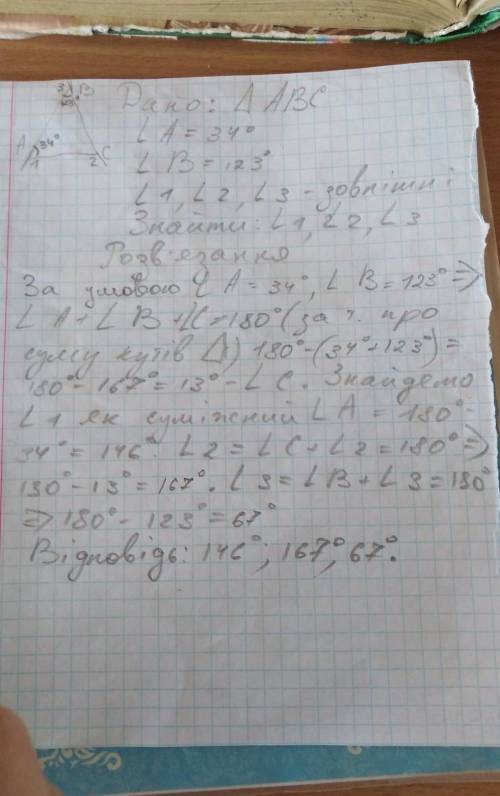 3 B
123°
Дано: Δ ABC
A 34°
1 2 C
∠A = 34°
∠B = 123°
∠1, ∠2, ∠3 - зовнішні
Знайти: ∠1, ∠2, ∠3
Розв'язання
За умовою ∠A = 34°, ∠B = 123° =>
∠A + ∠B + ∠C = 180° (за т. про
суму кутів Δ) 180° - (34° + 123°) =
180° - 167° = 13° - ∠C. Знайдемо
∠1 як суміжний ∠A = 180° -
34° = 146°. ∠2 = ∠C + ∠2 = 180° =>
180° - 13° = 167°. ∠3 = ∠B + ∠3 = 180°
=> 180° - 123° = 67°
Відповідь: 146°; 167°, 67°.